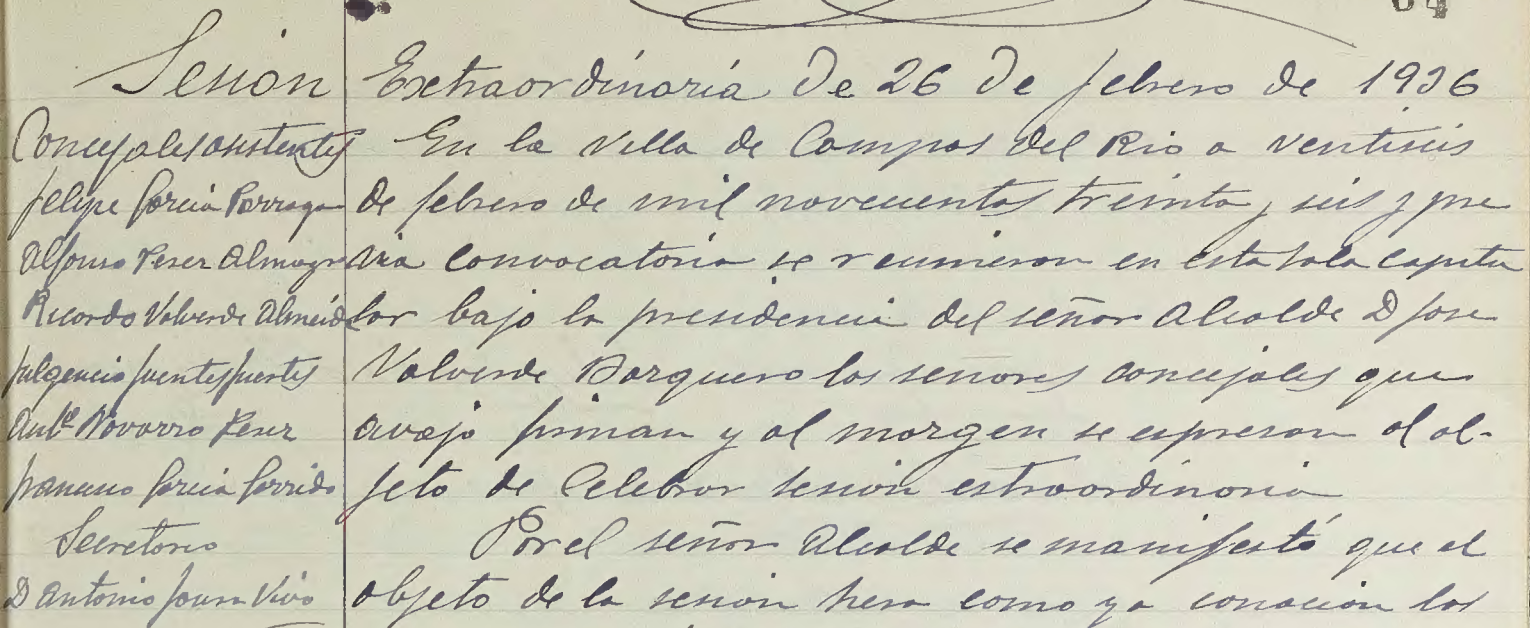 64
Sesion Extraordinaria de 26 de febrero de 1936
Concejales asistentes
Felipe Garcia Parraga
Alfonso Perez Almagro
Ricardo Valverde Almeida
Fulgencio Fuentes Fuentes
Antº Navarro Perez
Francisco Garcia Garrido
Secretario
D Antonio Vivo
En la Villa de Campos del Rio a ventiseis
de febrero de mil novecuentos treinta y seis y pre
via convocatoria se reunieron en esta sala capitu
lar bajo la presidencia del señor Alcalde D Jose
Valverde Barquero los señores concejales que
avajo firman y al margen se espresan al ob-
jeto de Celebrar sesion estraordinaria
Por el señor Alcalde se manifestó que el
objeto de la sesion hera como ya conocian los